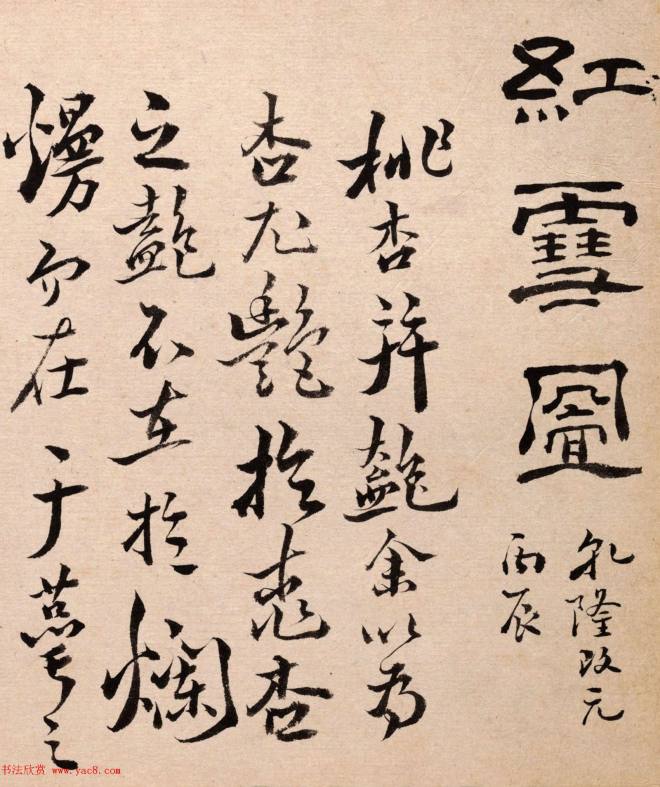 紅雪圖
乾隆改元
丙辰
桃杏並艷余以为
杏尤艷於桃杏
之艷不在於爛
熳而在
于
之
书法欣赏 www.yac8.com